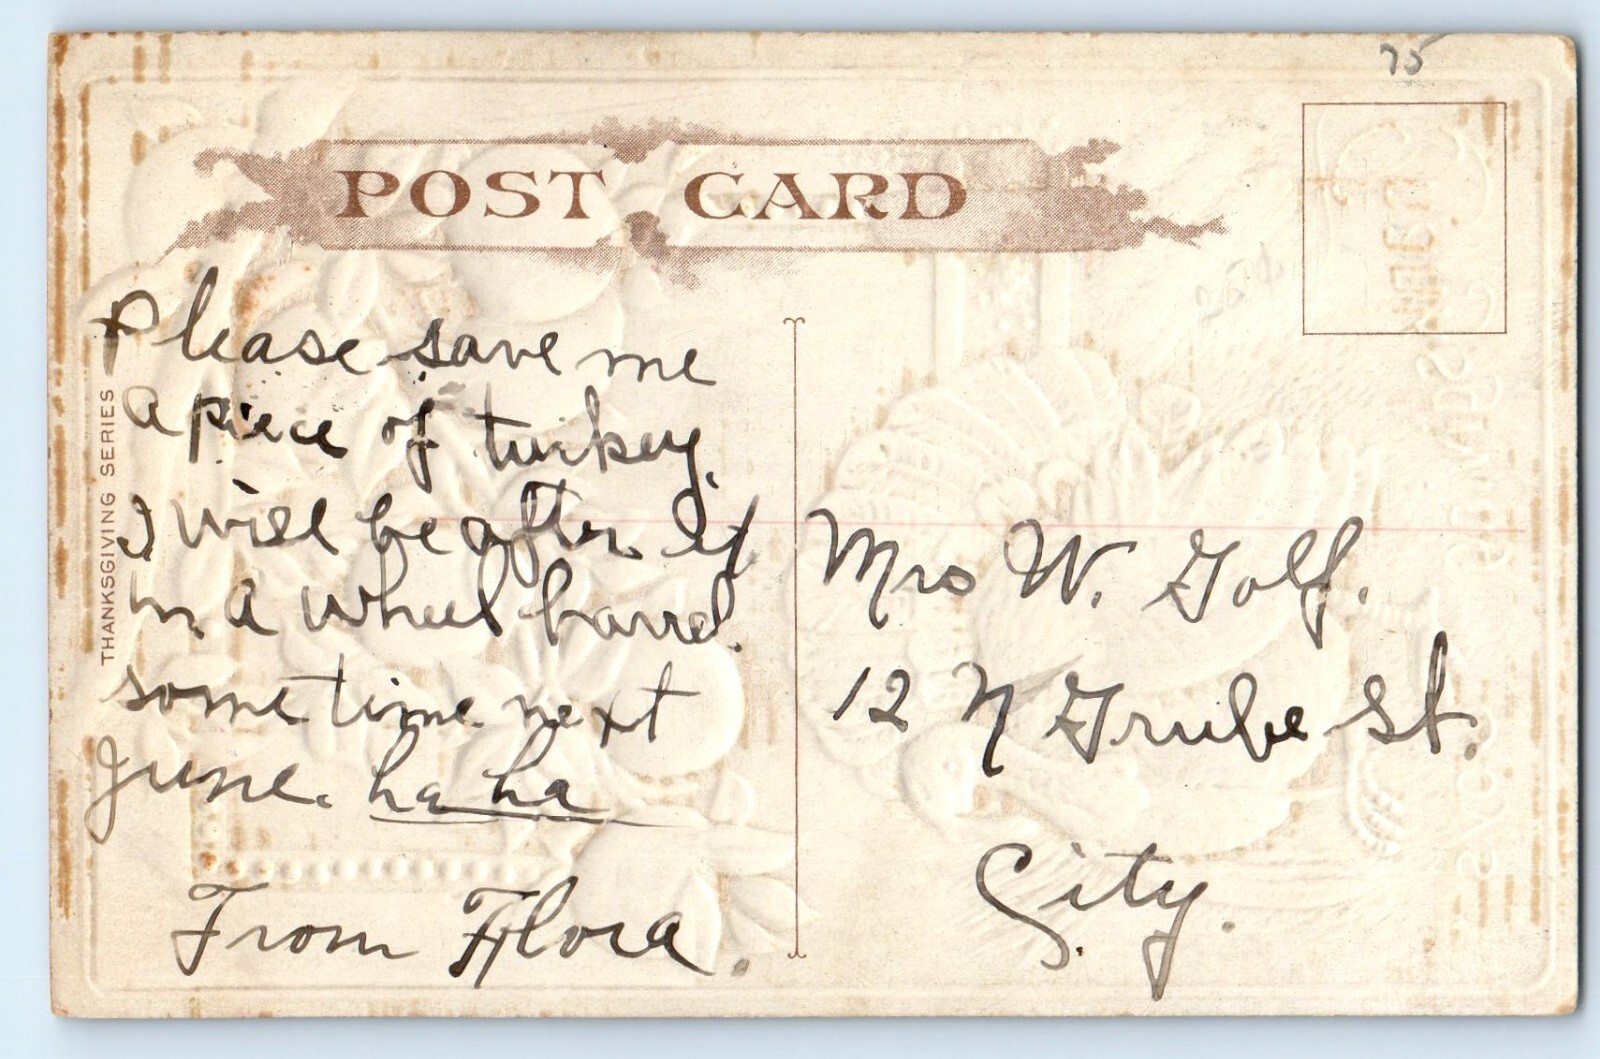 75
POST CARD
THANKSGIVING SERIES
Please save me
a piece of turkey.
I will be after it
in a wheel barrel.
sometime next
June. ha ha
From Flora.
Mrs W. Golf.
12 N Grube St.
City.